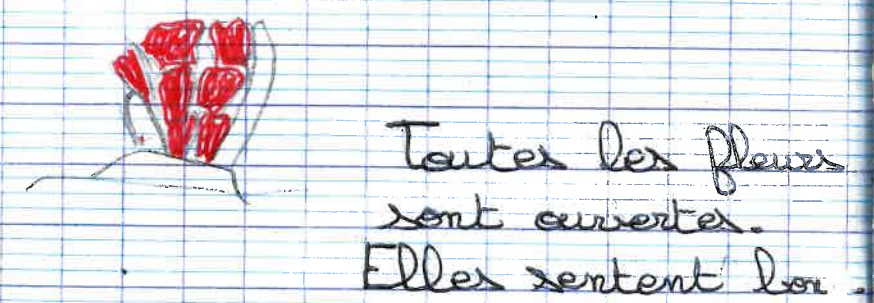 Toutes les fleurs
sont ouvertes.
Elles sentent bon.